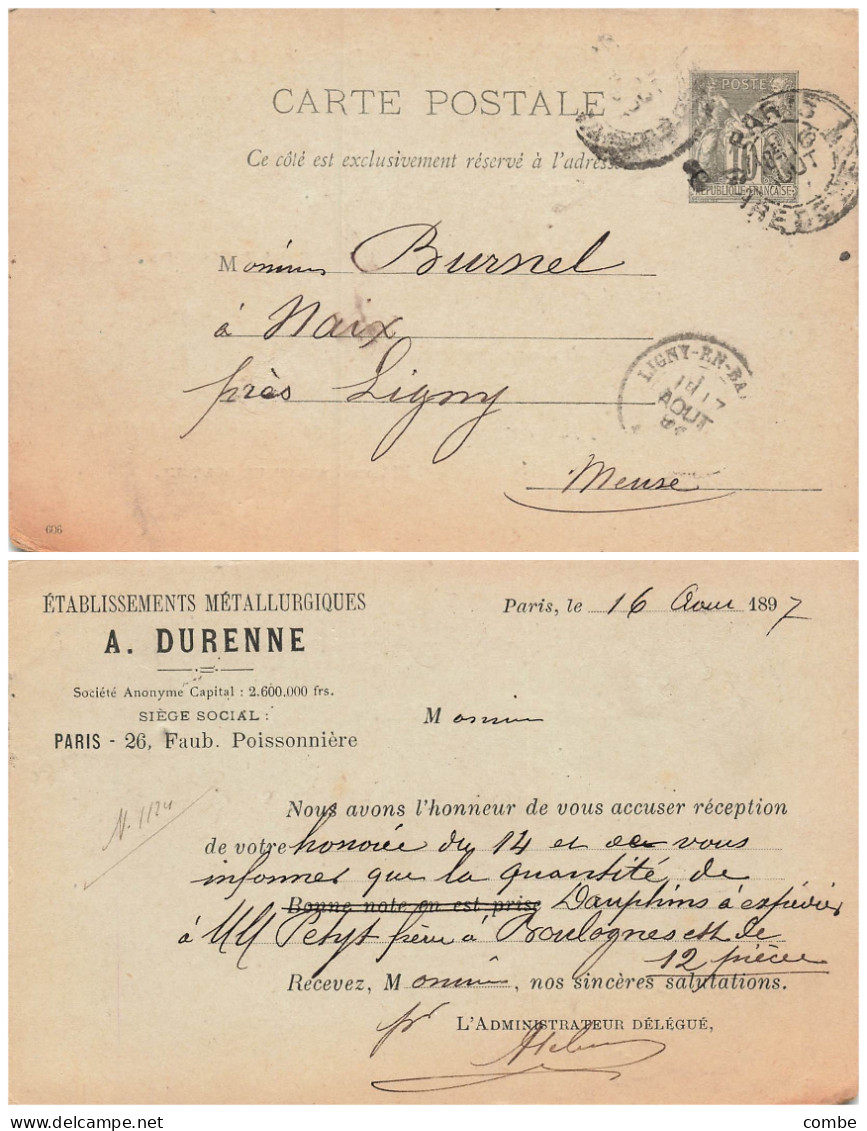 CARTE POSTALE
Ce côté est exclusivement réservé à l'adresse
POSTE
10
RÉPUBLIQUE FRANÇAISE
PARIS
16
AOUT
GARE DE
Monsieur Burnel
à Naix
près Ligny
Meuse
LIGNY-EN-BA
17
AOUT
606
ÉTABLISSEMENTS MÉTALLURGIQUES
A. DURENNE
Société Anonyme Capital : 2.600.000 frs.
SIÈGE SOCIAL :
PARIS - 26, Faub. Poissonnière
Paris, le 16 Aout 1897
Monsieur
N. 1124
Nous avons l'honneur de vous accuser réception
de votre honorée du 14 et de vous
informer que la quantité de
Bonne note en est prise Dauphins à expédier
à MM Petyt frère à Boulogne est de
12 pièces
Recevez, Monsieur, nos sincères salutations.
pr L'ADMINISTRATEUR DÉLÉGUÉ,
combe